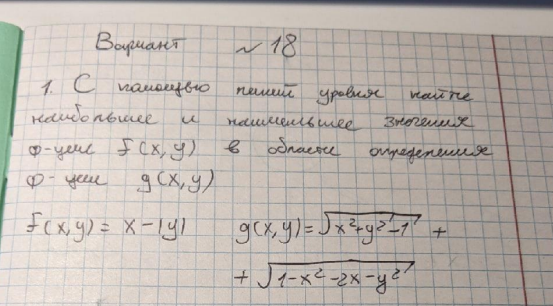 Вариант № 18
1. С помощью линий уровня найти
наибольшее и наименьшее значения
ф-ции f(x,y) в области определения
ф-ции g(x,y)
f(x,y) = x - |y| g(x,y) = √(x²+y²-1) +
+ √(1-x²-2x-y²)